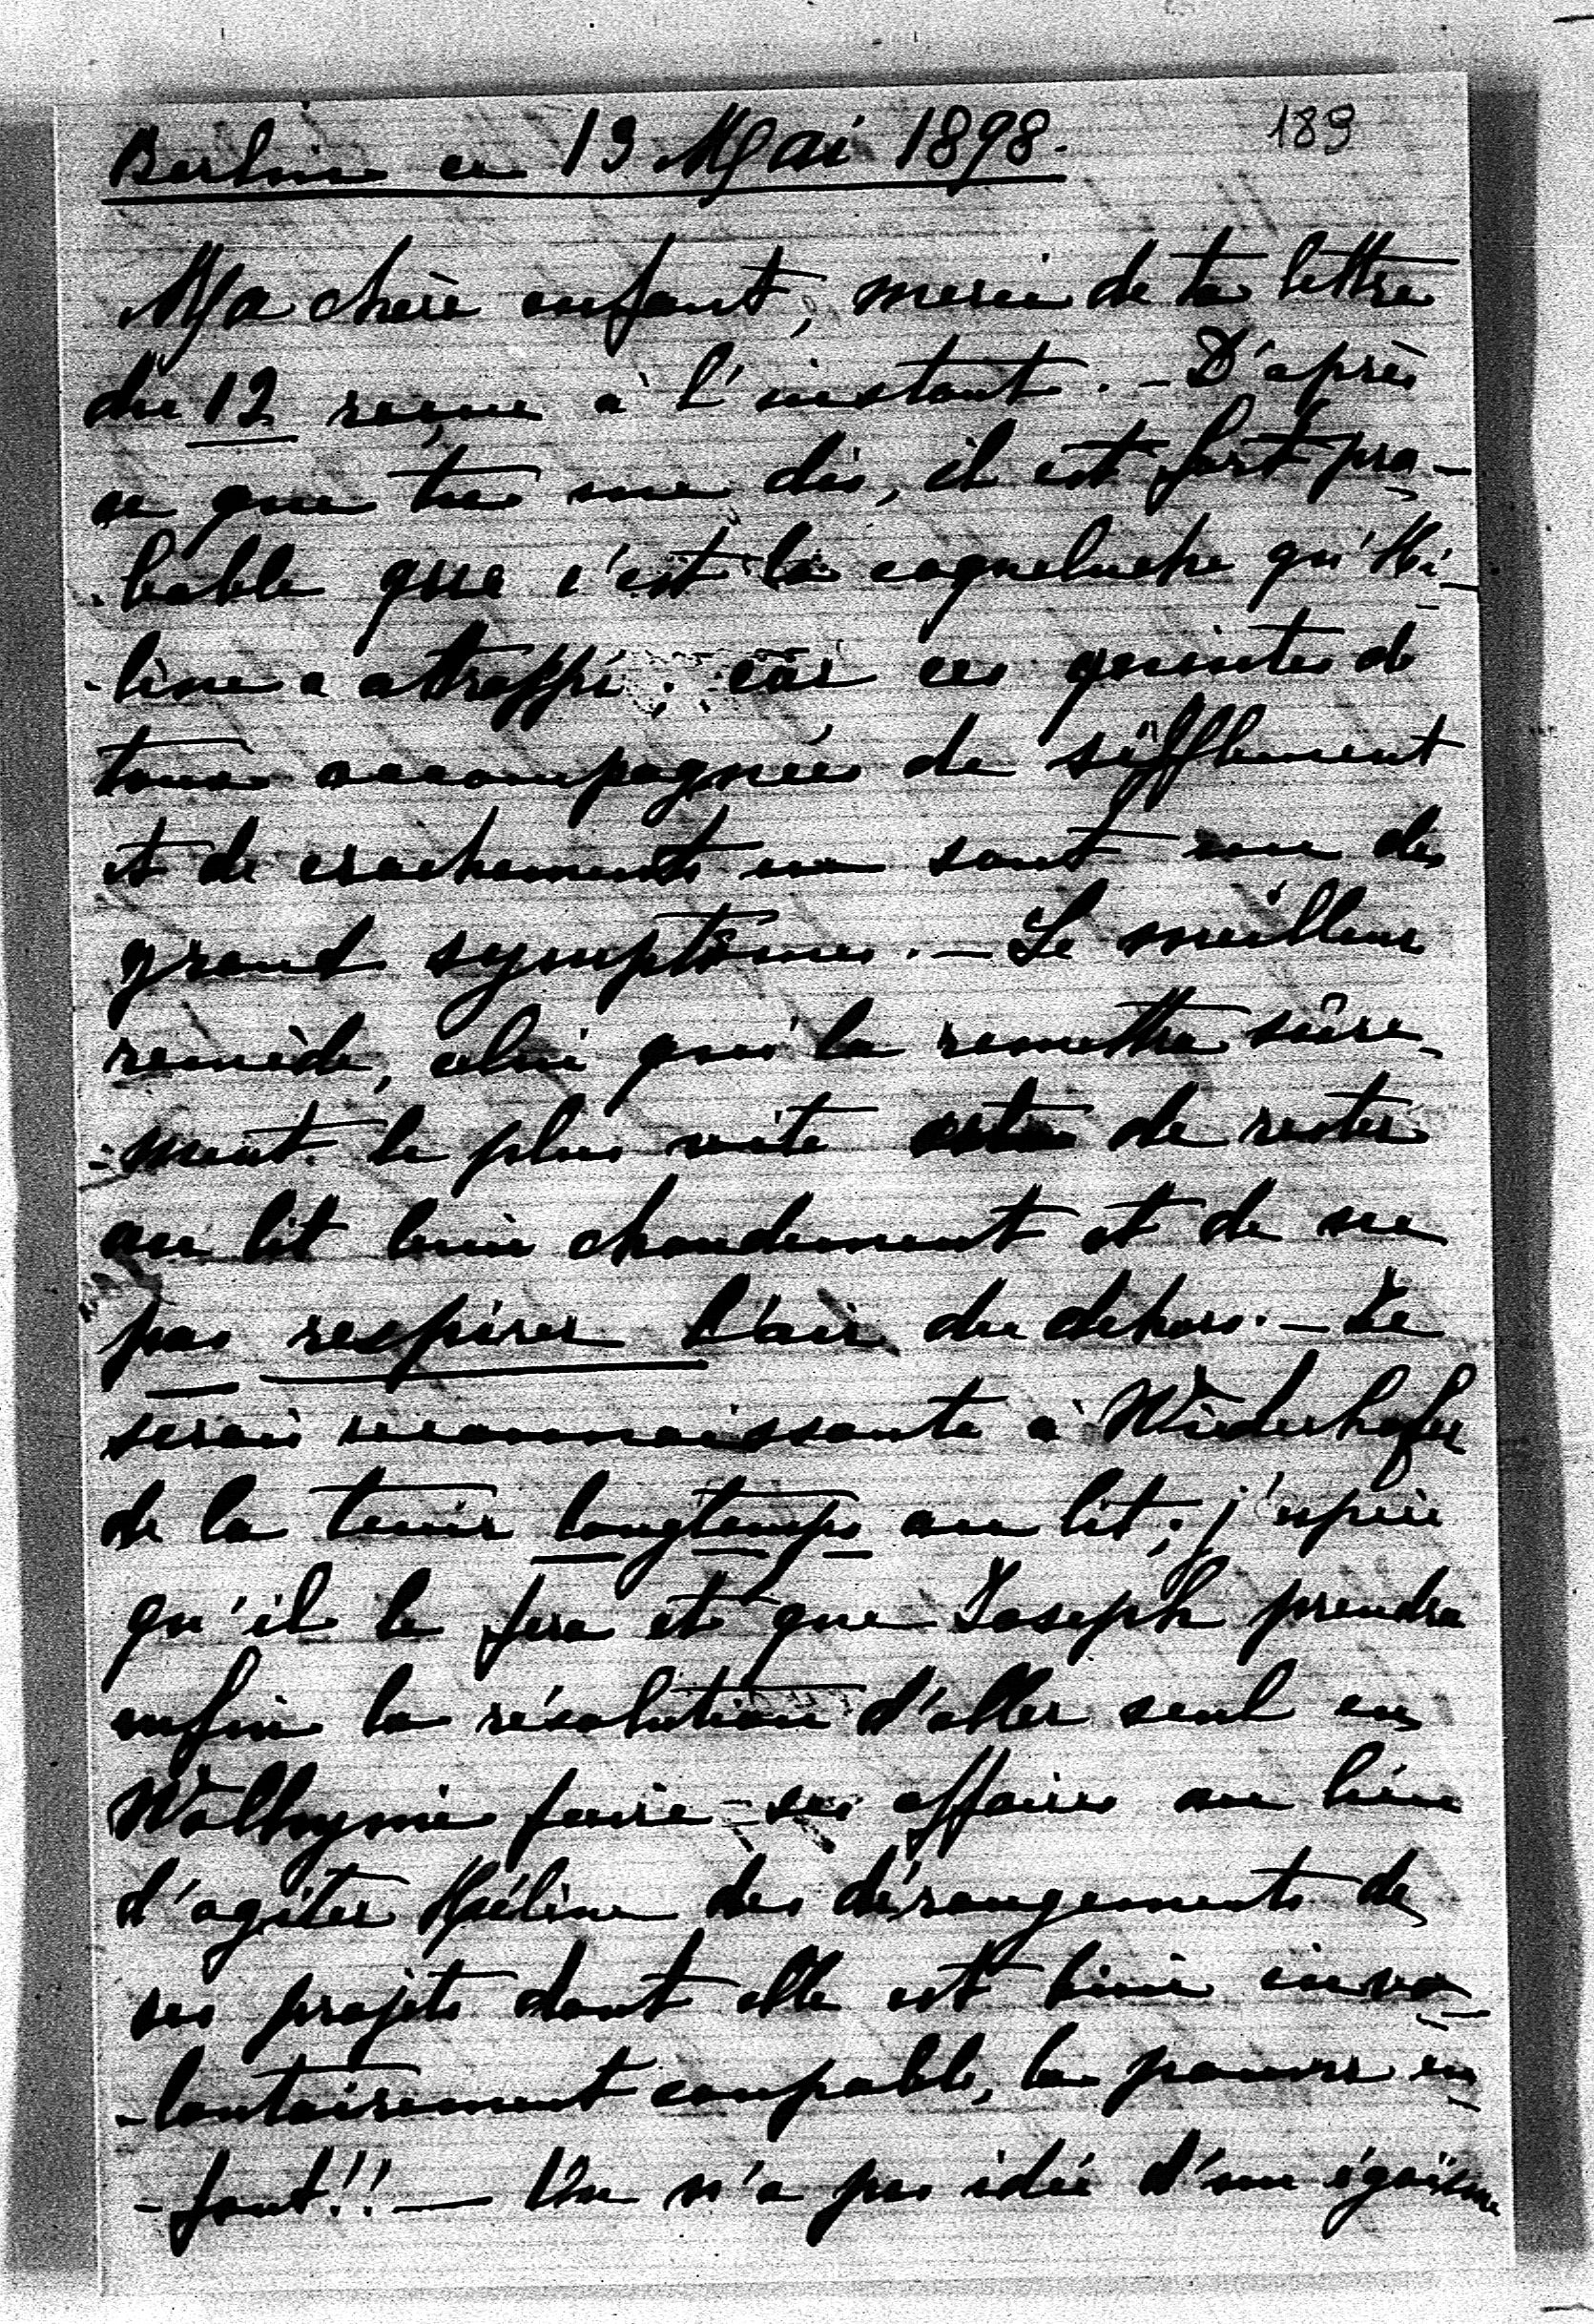 Berlin ce 13 Mai 1898.
189
Ma chère enfant, merci de ta lettre
du 12 reçue à l'instant. - D'après
ce que tu me dis, il est fort pro-
-bable que c'est la coqueluche qu'Hé-
-lène a attrappé; car ces quintes de
toux accompagnées de sifflement
et de crachements en sont un des
grands symptômes. - Le meilleur
remède, celui qui la remettra sûre-
-ment le plus vite de rester
au lit bien chaudement et de ne
pas respirer l'air du dehors. - Je
serais reconnaissante à Wiederhofer
de la tenir longtemps au lit; j'espère
qu'il le fera et que Joseph prendra
enfin la résolution d'aller seul en
Wolhynie faire ses affaires au lieu
d'agiter Hélène des dérangements de
ses projets dont elle est bien invo-
-lontairement coupable, la pauvre en-
-fant!! - On n'a pas idée d'un égoïsme